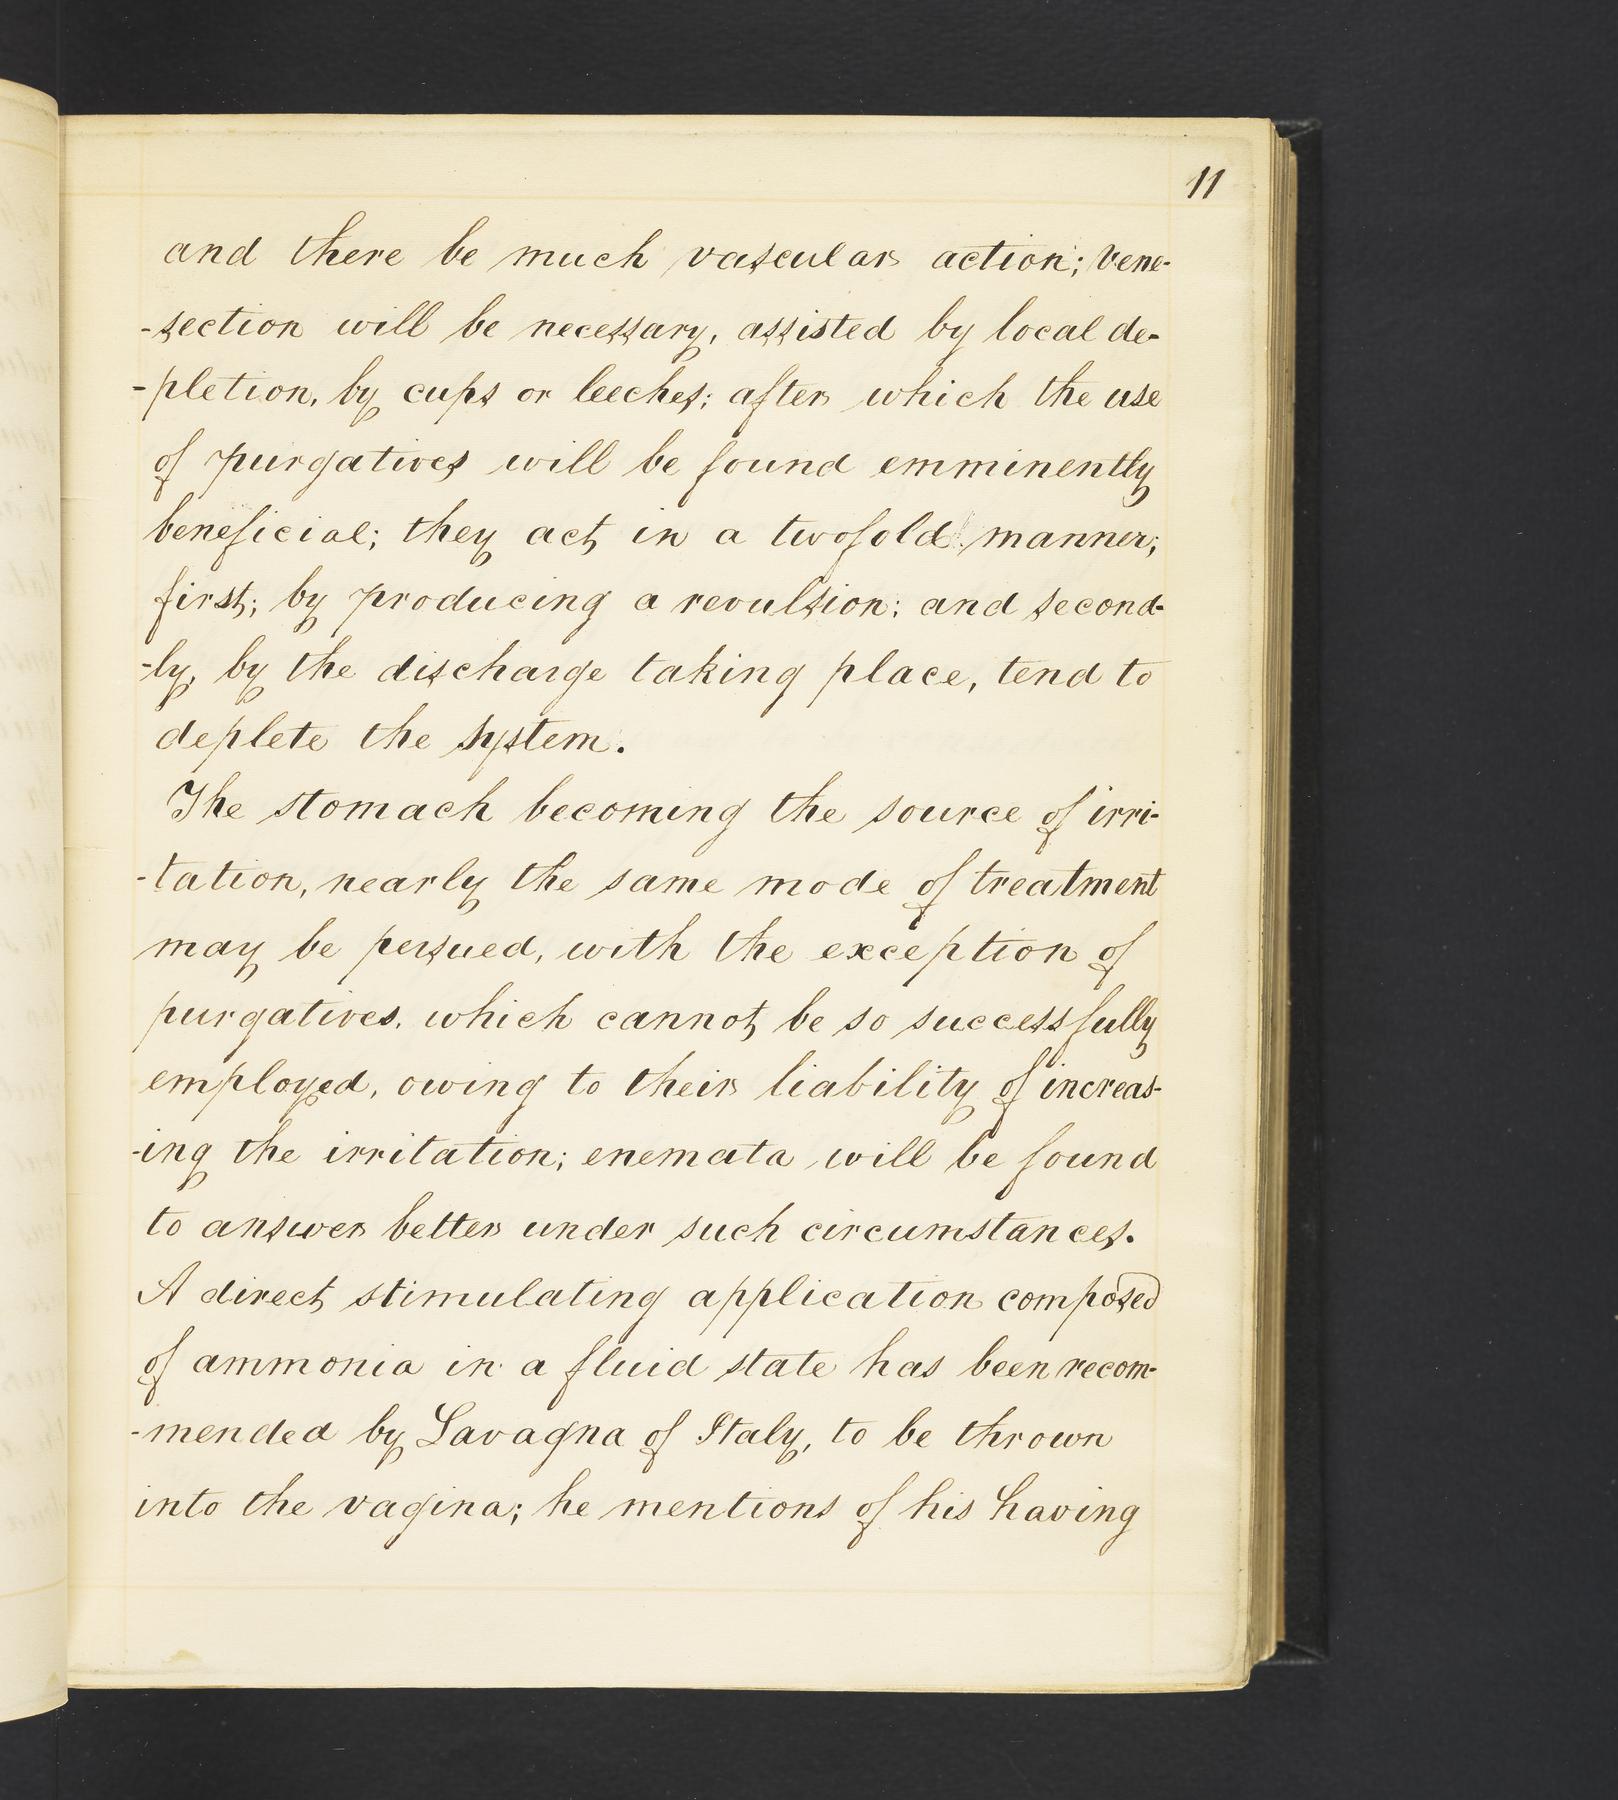 11
and there be much vascular action; vene-
-section will be necessary, assisted by local de-
-pletion, by cups or leeches; after which the use
of purgatives will be found emminently
beneficial; they act in a twofold manner;
first; by producing a revulsion; and second-
-ly, by the discharge taking place, tend to
deplete the system.
The stomach becoming the source of irri-
-tation, nearly the same mode of treatment
may be persued, with the exception of
purgatives, which cannot be so successfully
employed, owing to their liability of increas-
-ing the irritation; enemata will be found
to answer better under such circumstances.
A direct stimulating application composed
of ammonia in a fluid state has been recom-
-mended by Lavagna of Italy, to be thrown
into the vagina; he mentions of his having